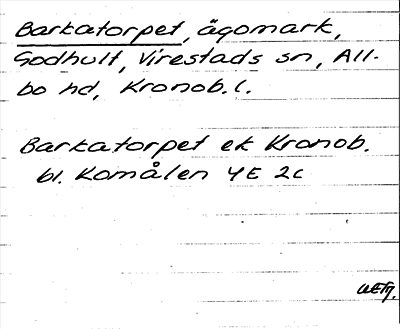 Barkatorpet, ägomark,
Godhult, Virestads sn, All-
bo hd, Kronob. l.
Barkatorpet ek Kronob.
bl. Komålen 4E 2c